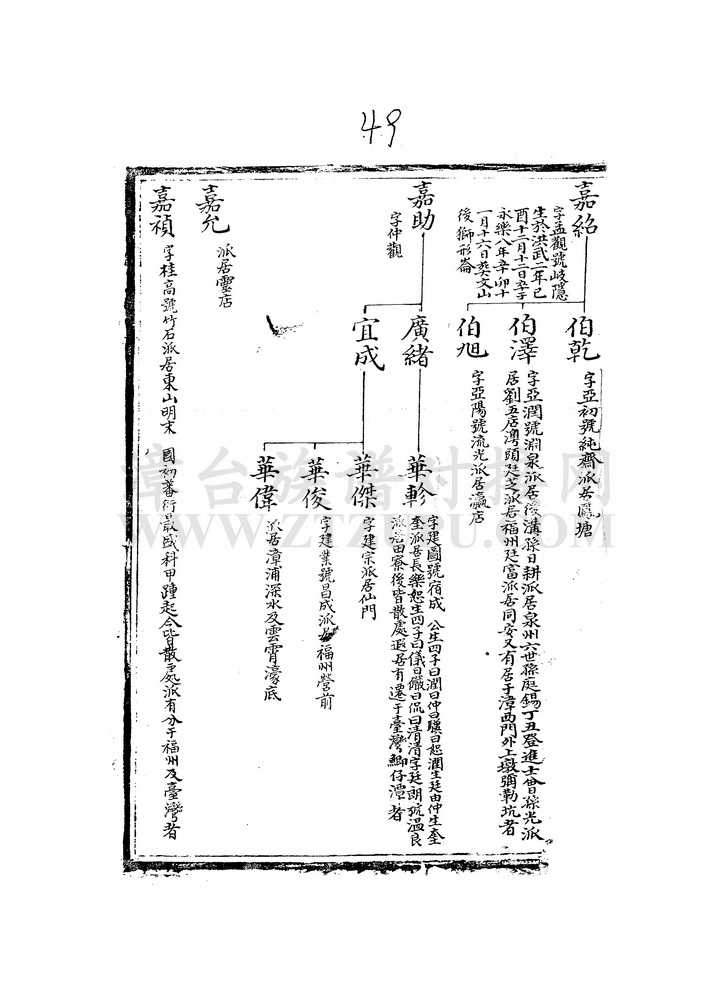 49
嘉紹
字孟觀號岐隱
生於洪武二年己
酉十二月十二日卒于
永樂八年辛卯十
一月十六日葬文山
後獅形崙
伯乾
字亞初號純齋派居鳳塘
伯澤
字亞潤號淵泉派居後溝孫日耕派居泉州六世孫庭錫丁丑登進士曾孫光派
居劉五店澳頭廷芝派居福州廷富派居同安又有居于漳西門外土墩彌勒坑者
伯旭
字亞陽號流光派居瀛店
嘉助
字仲觀
廣緒
華軫
字建圖號宿成 公生四子曰潤曰仲曰驥曰恕潤生廷由仲生奎
奎派居長樂恕生四子曰儀曰儼曰侃曰清清字廷朗號溫良
派居田寮後皆散處遐居有遷于臺灣鯽仔潭者
宜成
華傑
字建宗派居仙門
華俊
字建業號昌成派居福州營前
華偉
派居漳浦深水及雲霄濠底
嘉允
派居靈店
嘉禎
字桂高號竹石派居東山明末 國初蕃衍最盛科甲踵起今皆散處派有分于福州及臺灣者
章台族谱对接网
WWW.ZTZUPU.COM